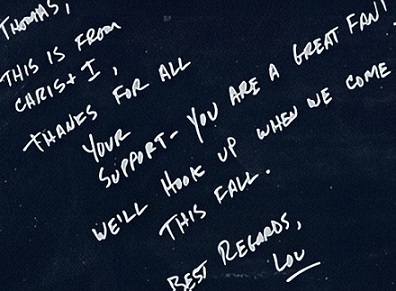 THOMAS,
THIS IS FROM
CHRIS + I,
THANKS FOR ALL
YOUR
SUPPORT - YOU ARE A GREAT FAN!
WE'LL HOOK UP WHEN WE COME
THIS FALL.
BEST REGARDS,
LOU